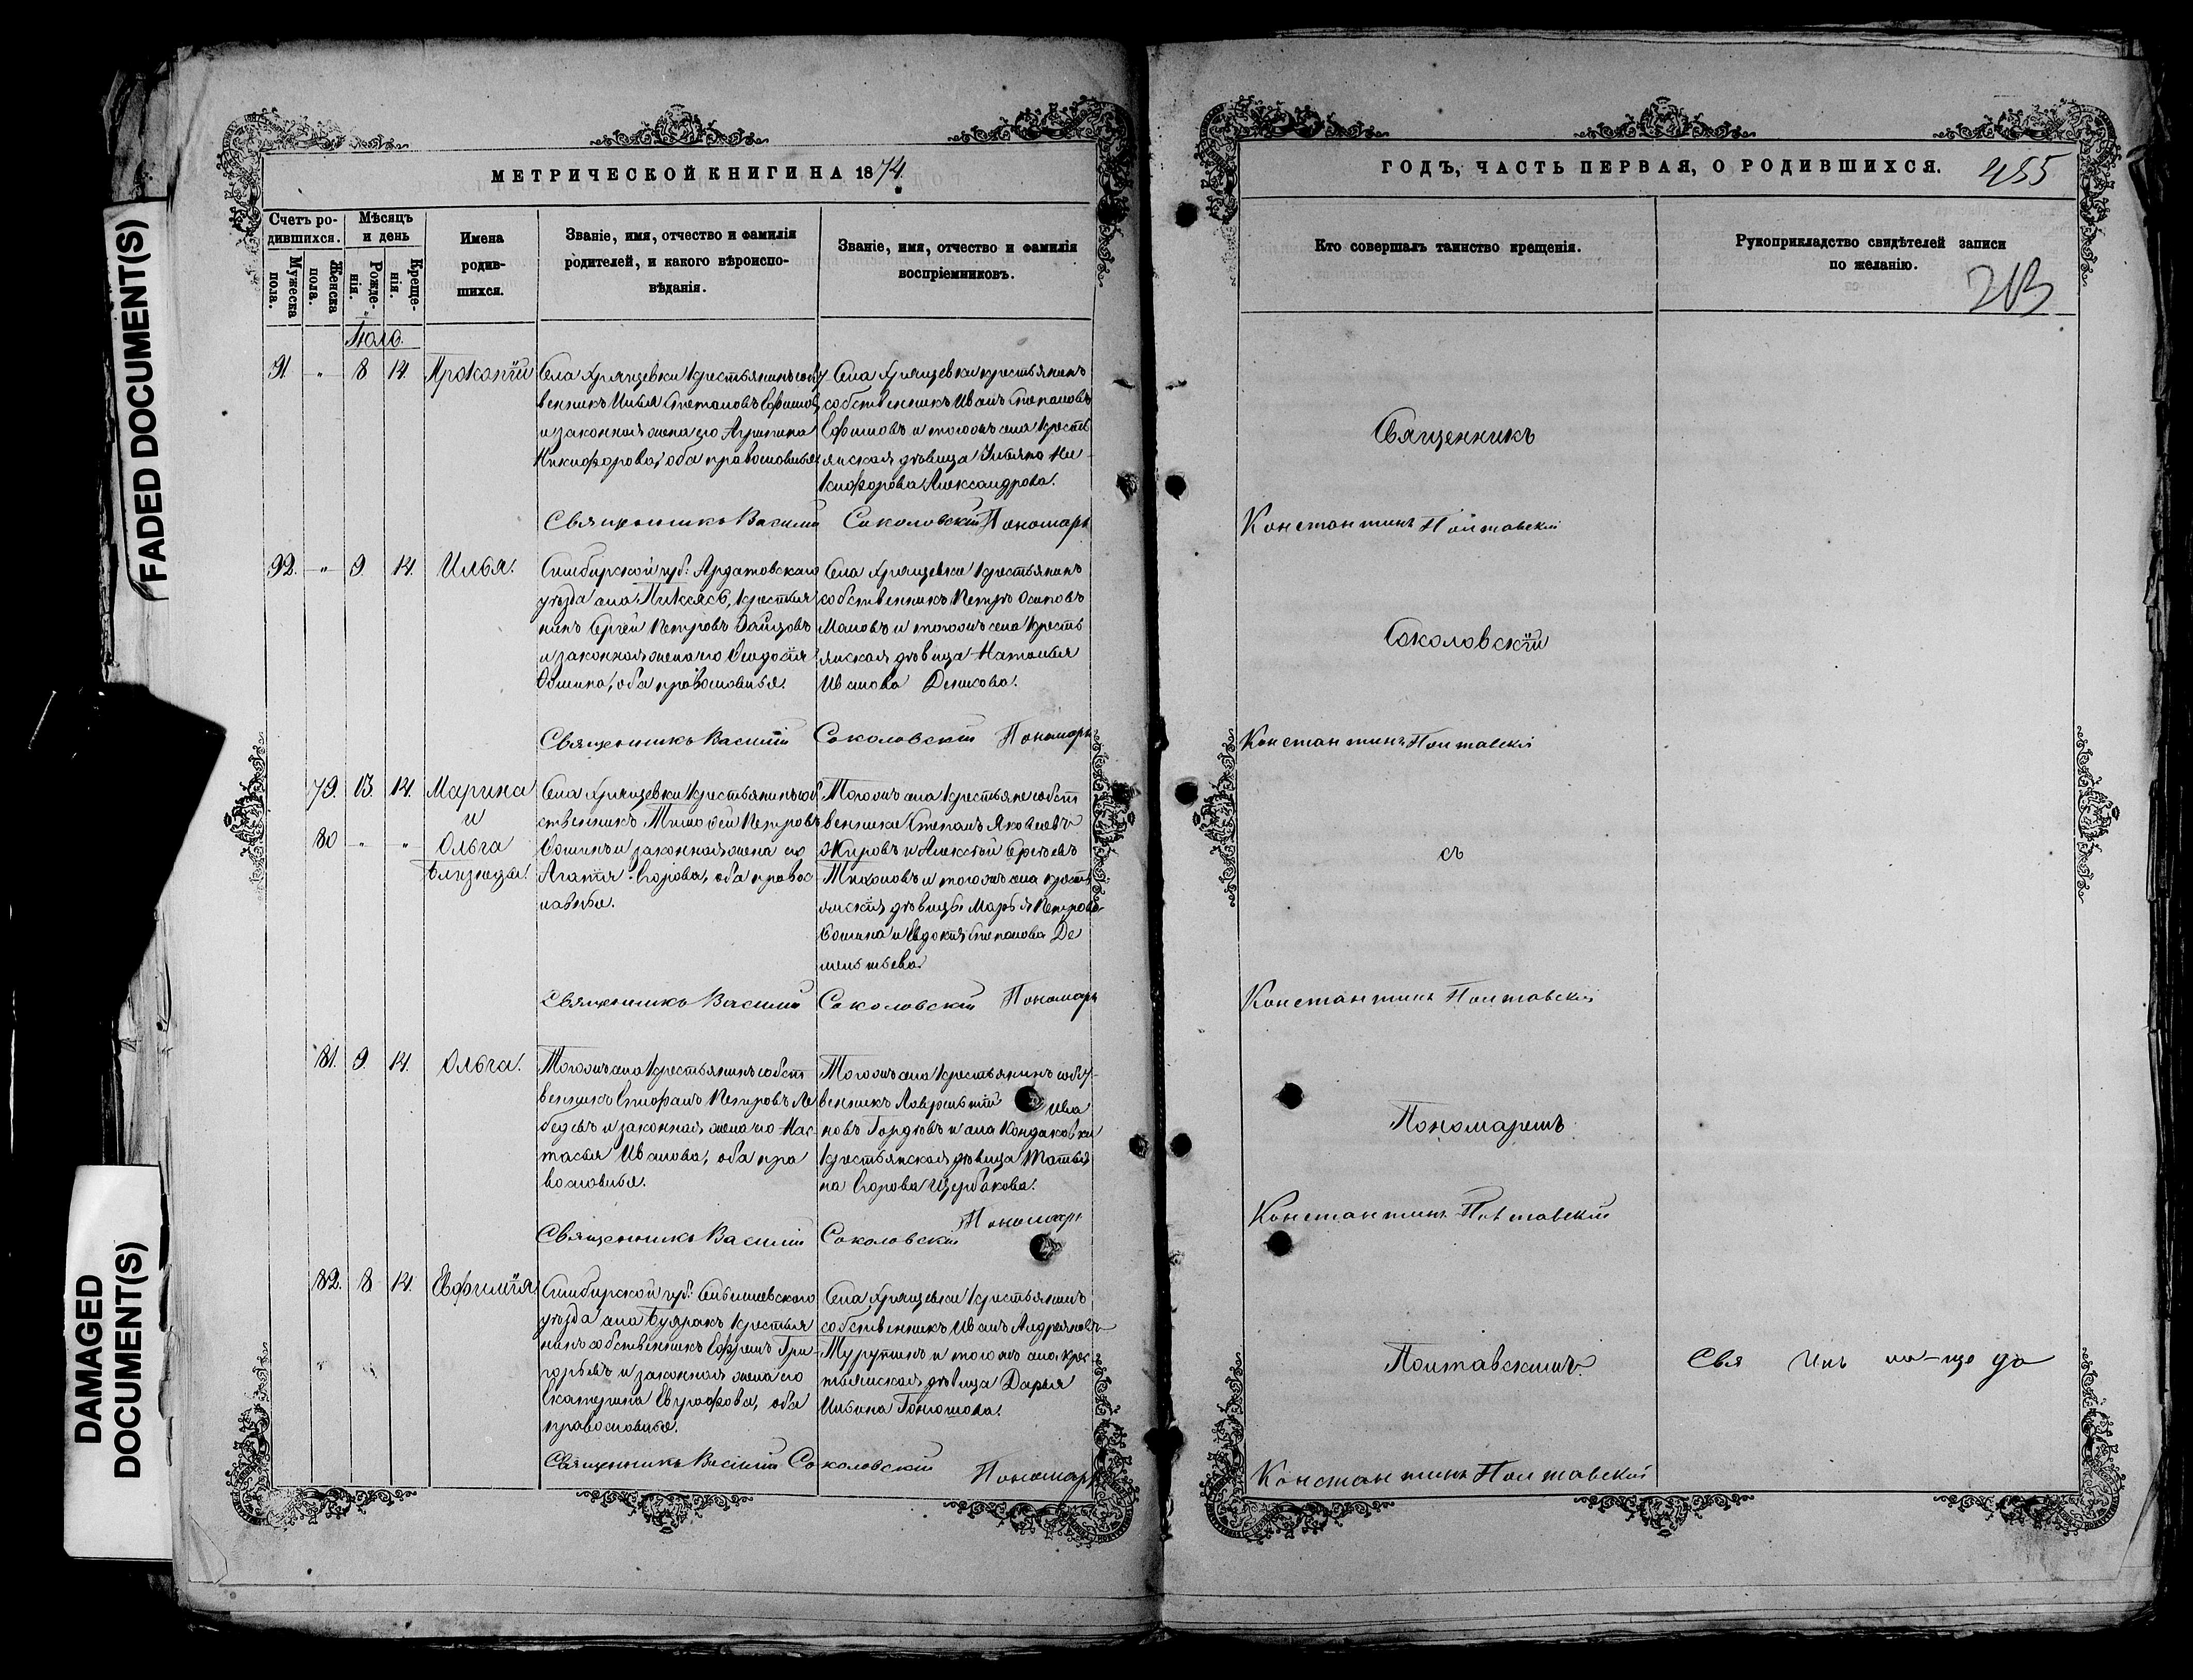 FADED DOCUMENT(S)
DAMAGED
DOCUMENT(S)
МЕТРИЧЕСКОЙ КНИГИ НА 1874.
Счетъ ро-
дившихся.
Мѣсяцъ
и день
Мужеска
пола.
Женска
пола.
Рожде-
нія.
Креще-
нія.
Имена
родив-
шихся.
Званіе, имя, отчество и фамилія
родителей, и какого вѣроиспо-
вѣданія.
Званіе, имя, отчество и фамилія
воспріемниковъ.
Іюль
91. " 8 14. Прокопій
Села Хрящевки крестьянинъ собст
венникъ Илья Степановъ Ефимовъ
и законная жена его Агрипина
Никифорова, оба православные
Села Хрящевки крестьянинъ
собственникъ Иванъ Степановъ
Ефимовъ и тогожъ села кресть
янская дѣвица Ульяна Ни
кифорова Александрова.
Священникъ Василій Соколовскій Пономарь
92. " 9. 14. Илья.
Симбирской губ. Ардатовскаго
уѣзда села Пиксясъ, крестья
нинъ Сергѣй Петровъ
и законная жена его Ѳеодосія
оба православные.
Села Хрящевки крестьянинъ
собственникъ Петръ Осиповъ
и тогожъ села кресть
янская дѣвица Наталья
Иванова Денисова.
Священникъ Василій Соколовскій Пономарь
79. 13. 14. Марина
и
80 " " Ольга
близнецы.
Села Хрящевки крестьянинъ соб
ственникъ Тимофей Петровъ
Сошинъ и законная жена его
Агапія Егорова, оба правос
лавные.
Тогожъ села крестьяне собст
венники Степанъ Яковлевъ
Жировъ и Алексѣй Сергѣевъ
Тихоновъ и тогожъ села кресть
янскія дѣвицы Марья Петрова
Сошина и Евдокія Степанова Де
ментьева.
Священникъ Василій Соколовскій Пономарь
81. 9. 14. Ольга.
Тогожъ села крестьянинъ собст
венникъ Епифанъ Петровъ Ле
бедевъ и законная жена его Нас
тасья Иванова, оба пра
вославные.
Тогожъ села крестьянинъ собст
венникъ Лаврентій Ива
новъ Гордѣевъ и села Кондаковки
крестьянская дѣвица Татья
на Егорова Щербакова.
Священникъ Василій Соколовскій Пономарь
82. 8 14. Евфимія
Симбирской губ. Сенгилеевскаго
уѣзда села Буяракъ крестья
нинъ собственникъ Ефремъ Гри-
горьевъ и законная жена его
Екатерина Евграфова, оба
православные.
Села Хрящевки крестьянинъ
собственникъ Иванъ Андреяновъ
и тогожъ села крес
тьянская дѣвица Дарья
Ильина
Священникъ Василій Соколовскій Пономарь
ГОДЪ, ЧАСТЬ ПЕРВАЯ, О РОДИВШИХСЯ. 455
Кто совершалъ таинство крещенія.
Рукоприкладство свидѣтелей записи
по желанію.
213
Священникъ
Константинъ Полтавскій
Соколовскій
Константинъ Полтавскій
съ
Константинъ Полтавскій
Пономаремъ
Константинъ Полтавскій
Полтавскимъ.
Константинъ Полтавскій